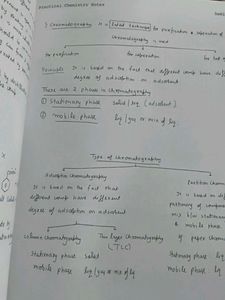 PRACTICAL CHEMISTRY NOTES
Chromatography is a latest technique for purification & separation of
Chromatography is used
for purification for separation for test
Principle It is based on the fact that different comp have diff
degree of adsorption on adsorbent
There are 2 phases in chromatography
① Stationary phase Solid / liq (adsorbent)
② mobile phase liq / gas or mix of liq.
Type of Chromatography
Adsorption Chromatography Partition Chromat
It is based on the fact that It is based on
different comp have different partioning of compoun
degree of adsorption on adsorbent mix b/w stationar
& mobile phase
Column Chromatography Thin Layer Chromatography of paper chromat
(TLC)
Stationary phase Solid Stationary phase liq
mobile phase liq / gas / mix of liq mobile phase liq